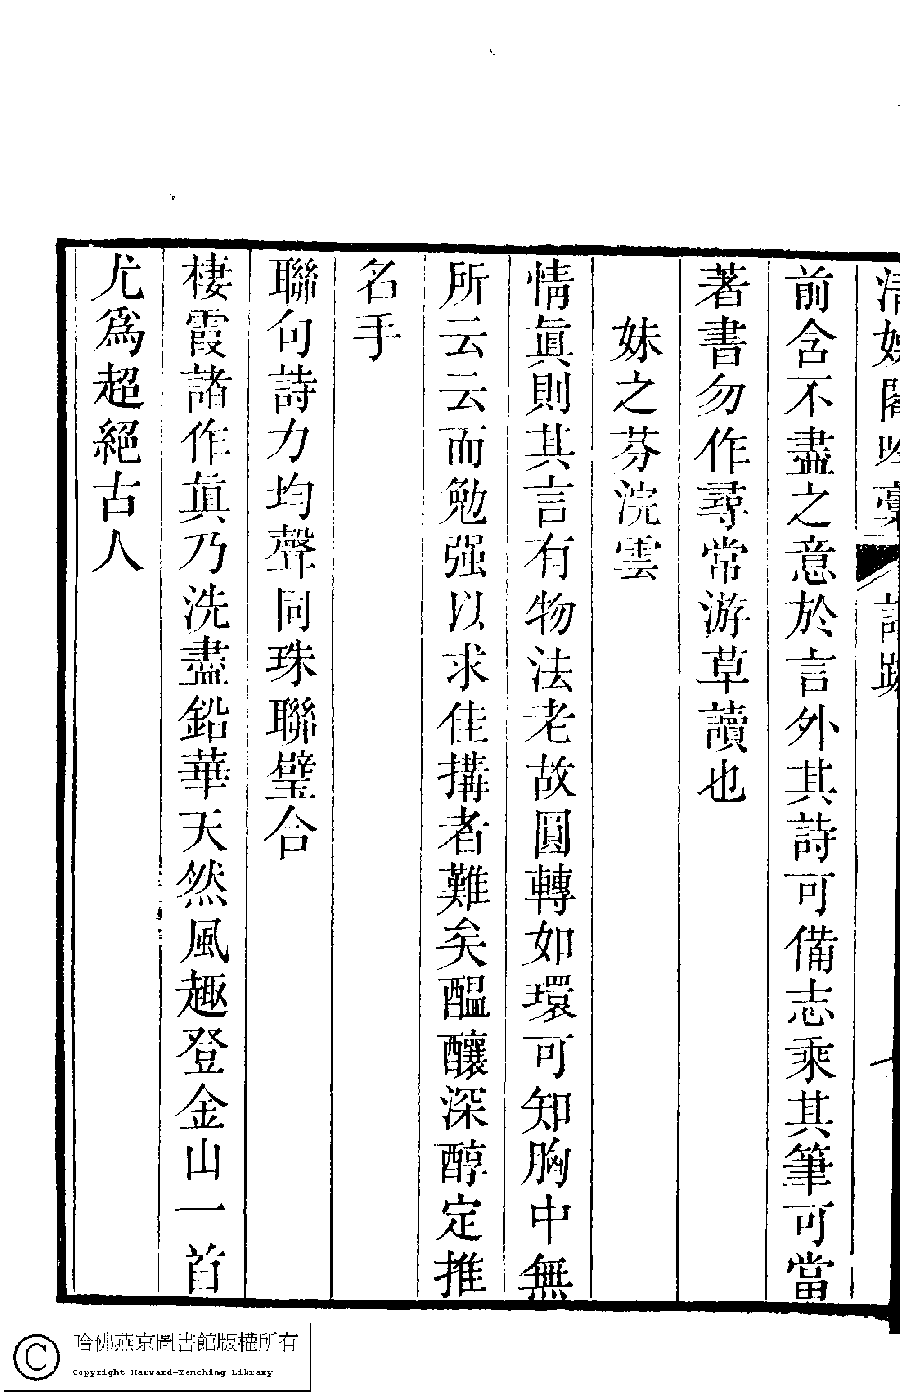 前含不盡之意於言外其詩可備志乘其筆可當
著書勿作尋常游草讀也
妹之芬浣雲
情眞則其言有物法老故圓轉如環可知胸中無
所云云而勉强以求佳搆者難矣醞釀深醇定推
名手
聯句詩力均聲同珠聯璧合
棲霞諸作眞乃洗盡鉛華天然風趣登金山一首
尤爲超絕古人
哈佛燕京圖書館版權所有
Copyright Harvard-Yenching Library